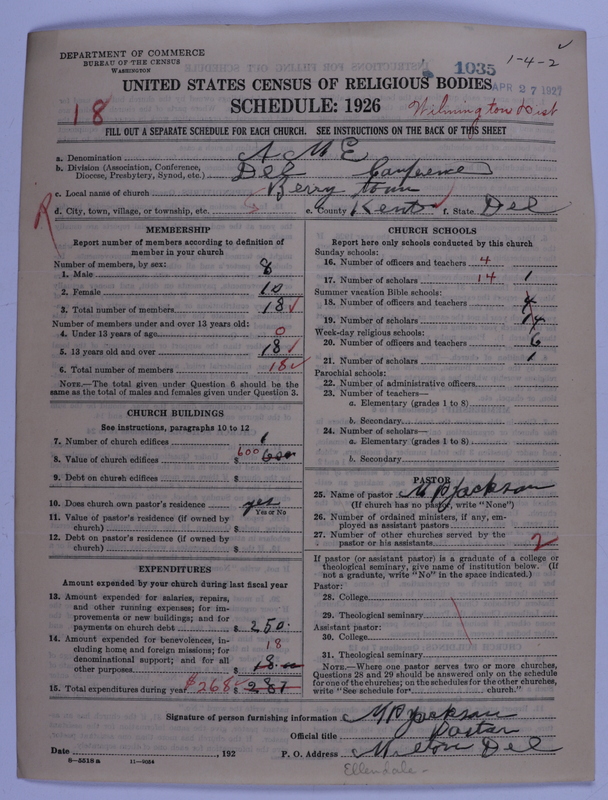 DEPARTMENT OF COMMERCE
BUREAU OF THE CENSUS
WASHINGTON
1035
1-4-2
APR 27 1927
UNITED STATES CENSUS OF RELIGIOUS BODIES
SCHEDULE: 1926
18
Wilmington Dist
FILL OUT A SEPARATE SCHEDULE FOR EACH CHURCH. SEE INSTRUCTIONS ON THE BACK OF THIS SHEET
a. Denomination A M E
b. Division (Association, Conference, Diocese, Presbytery, Synod, etc.) Del Conference
c. Local name of church Berry town
R
d. City, town, village, or township, etc. e. County Kent f. State Del
MEMBERSHIP
Report number of members according to definition of
member in your church
Number of members, by sex:
1. Male 8
2. Female 10
3. Total number of members 18
Number of members under and over 13 years old:
4. Under 13 years of age 0
5. 13 years old and over 18
6. Total number of members 18
NOTE.—The total given under Question 6 should be
the same as the total of males and females given under Question 3.
CHURCH BUILDINGS
See instructions, paragraphs 10 to 12
7. Number of church edifices 1
8. Value of church edifices $ 600 600
9. Debt on church edifices $
10. Does church own pastor's residence yes
Yes or No
11. Value of pastor's residence (if owned by
church) $
12. Debt on pastor's residence (if owned by
church) $
EXPENDITURES
Amount expended by your church during last fiscal year
13. Amount expended for salaries, repairs,
and other running expenses; for im-
provements or new buildings; and for
payments on church debt $ 250.
14. Amount expended for benevolences, in-
cluding home and foreign missions; for
denominational support; and for all
other purposes 18 18
15. Total expenditures during year $268 $ 287
CHURCH SCHOOLS
Report here only schools conducted by this church
Sunday schools:
16. Number of officers and teachers 4
17. Number of scholars 14 1
Summer vacation Bible schools:
18. Number of officers and teachers 4
19. Number of scholars 14
Week-day religious schools:
20. Number of officers and teachers 6
21. Number of scholars 1
Parochial schools:
22. Number of administrative officers
23. Number of teachers—
a. Elementary (grades 1 to 8)
b. Secondary
24. Number of scholars—
a. Elementary (grades 1 to 8)
b. Secondary
PASTOR
25. Name of pastor M P Jackson
(If church has no pastor, write "None")
26. Number of ordained ministers, if any, em-
ployed as assistant pastors
27. Number of other churches served by the
pastor or his assistants 2
If pastor (or assistant pastor) is a graduate of a college or
theological seminary, give name of institution below. (If
not a graduate, write "No" in the space indicated.)
Pastor:
28. College
29. Theological seminary
Assistant pastor:
30. College
31. Theological seminary
NOTE.—Where one pastor serves two or more churches,
Questions 28 and 29 should be answered only on the schedule
for one of the churches; on the schedules for the other churches,
write "See schedule for church."
Signature of person furnishing information M P Jackson
Official title Pastor
Date , 192 P. O. Address Milton Del
8—5518 a 11—9054
Ellendale